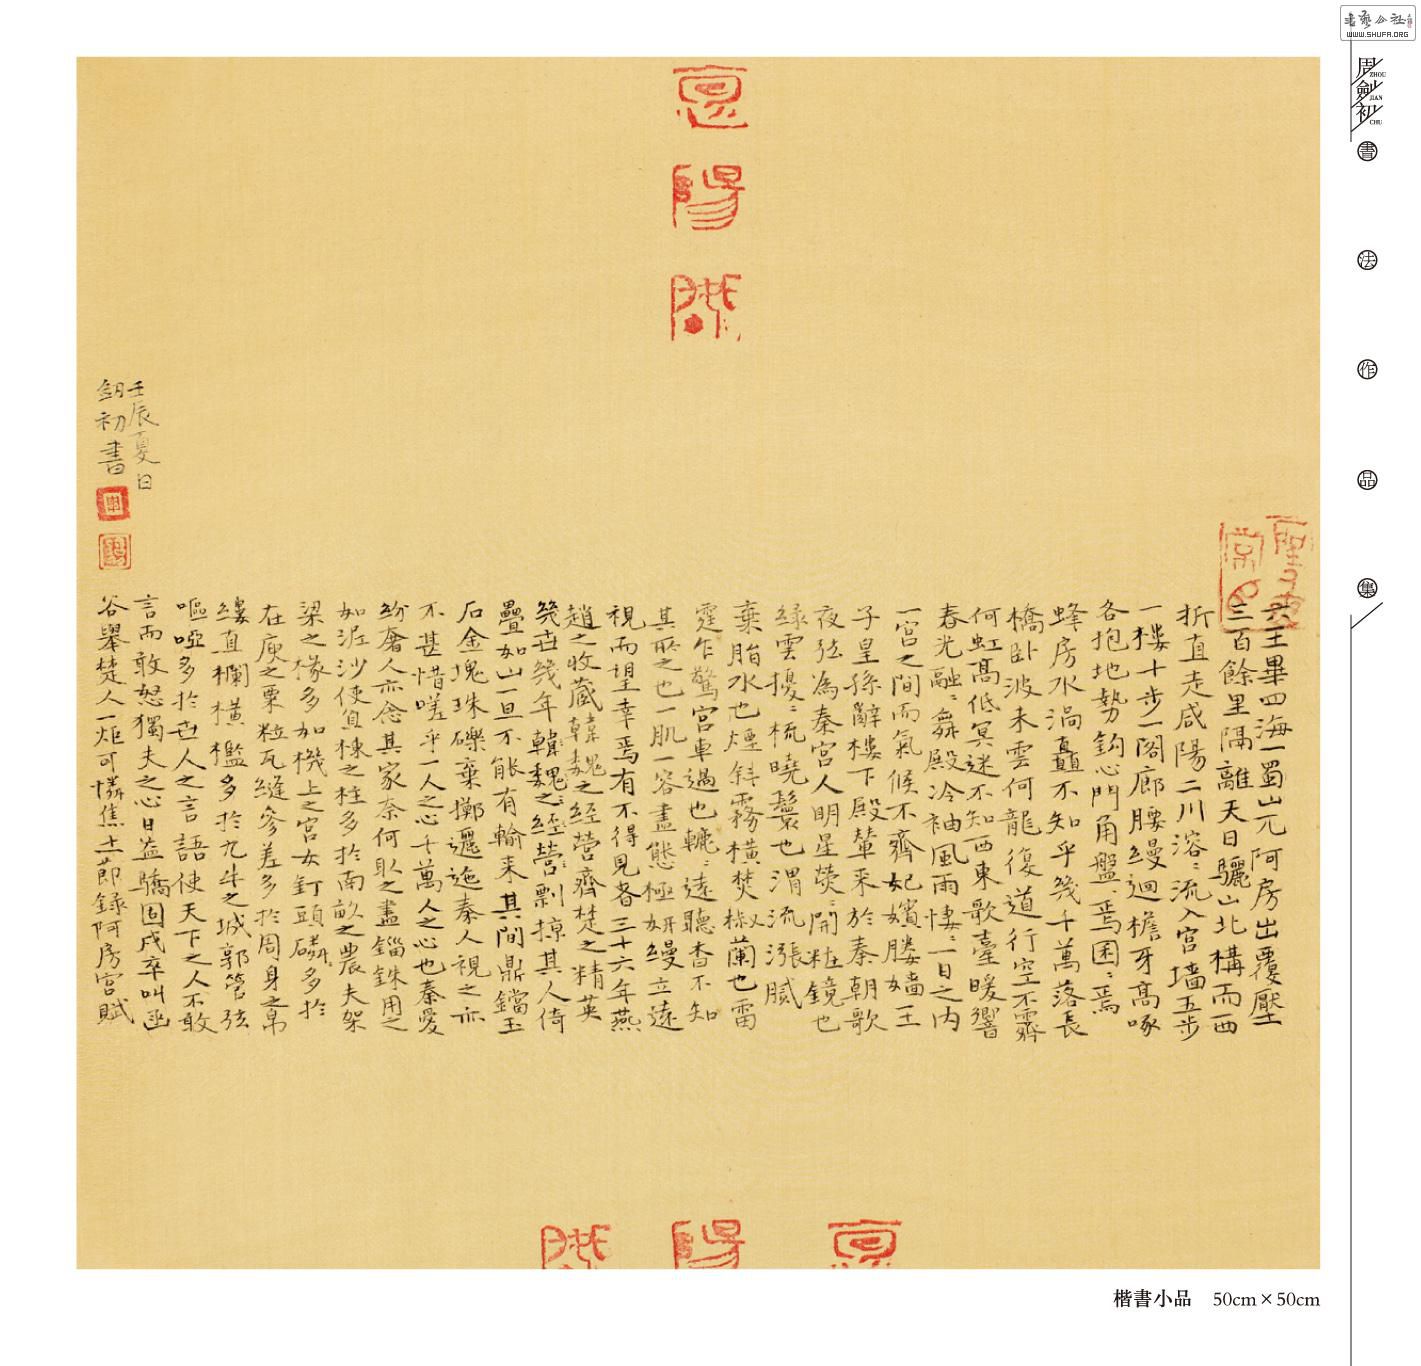 六王畢四海一蜀山兀阿房出覆壓
三百餘里隔離天日驪山北構而西
折直走咸陽二川溶〻流入宮墻五步
一樓十步一閣廊腰縵迴檐牙高啄
各抱地勢鈎心鬥角盤〻焉囷〻焉
蜂房水渦矗不知乎幾千萬落長
橋卧波未雲何龍復道行空不霽
何虹高低冥迷不知西東歌臺暖響
春光融〻舞殿冷袖風雨悽〻一日之内
一宮之間而氣候不齊妃嬪媵嬙王
子皇孫辭樓下殿輦來於秦朝歌
夜弦為秦宮人明星熒〻開粧鏡也
緑雲擾〻梳曉鬟也渭流漲膩
棄脂水也煙斜霧横焚椒蘭也雷
霆乍驚宮車過也轆〻遠聽杳不知
其所之也一肌一容盡態極妍縵立遠
視而望幸焉有不得見者三十六年燕
趙之收藏韓魏之經營齊楚之精英
幾世幾年韓魏之經營剽掠其人倚
疊如山一旦不能有輸來其間鼎鐺玉
石金塊珠礫棄擲邐迤秦人視之亦
不甚惜嗟乎一人之心千萬人之心也秦愛
紛奢人亦念其家奈何取之盡錙銖用之
如泥沙使負棟之柱多於南畝之農夫架
梁之椽多如機上之宮女釘頭磷〻多於
在庾之粟粒瓦縫參差多於周身之帛
縷直欄横檻多於九牛之城郭管弦
嘔啞多於世人之言語使天下之人不敢
言而敢怒獨夫之心日益驕固戍卒叫函
谷舉楚人一炬可憐焦土節録阿房宮賦
壬辰夏日
劍初書
楷書小品 50cm×50cm
周劍初
ZHOU
JIAN
CHU
書法作品集
書藝公社
WWW.SHUFA.ORG